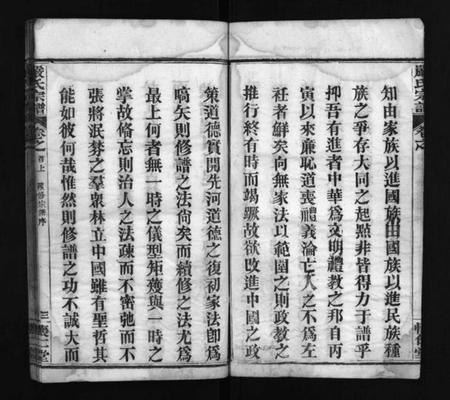 知由家族以進國族由國族以進民族種
族之爭存大同之起點非皆得力于譜乎
抑吾有進者中華為文明禮教之邦自丙
寅以來廉恥道喪禮義淪亡人之不為左
衽者鮮矣向無家法以範圍之則政教之
推行終有時而竭蹶故欲改進中國之政
策道德實開先河道德之復初家法卽為
嚆矢則修譜之法尙矣而續修之法尤為
最上何者無一時之儀型矩矱與一時之
掌故脩忘則治人之法疎而不密弛而不
張將泯棼之羣衆林立中國雖有聖哲其
能如彼何哉惟然則修譜之功不誠大而
嚴氏宗譜
卷之首上
修宗譜序
三